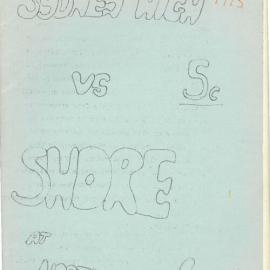 SYDNEY HIGH
VS 5c
SHORE
AT